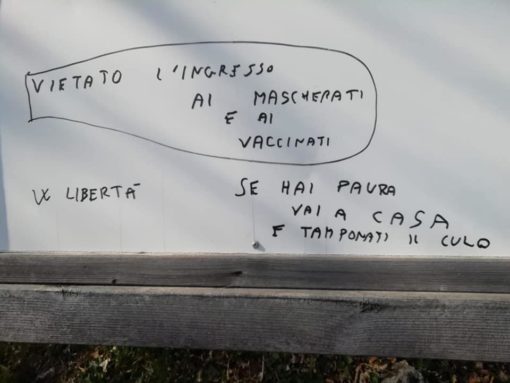 VIETATO L'INGRESSO
AI MASCHERATI
E AI
VACCINATI
W LIBERTÀ
SE HAI PAURA
VAI A CASA
E TAMPONATI IL CULO